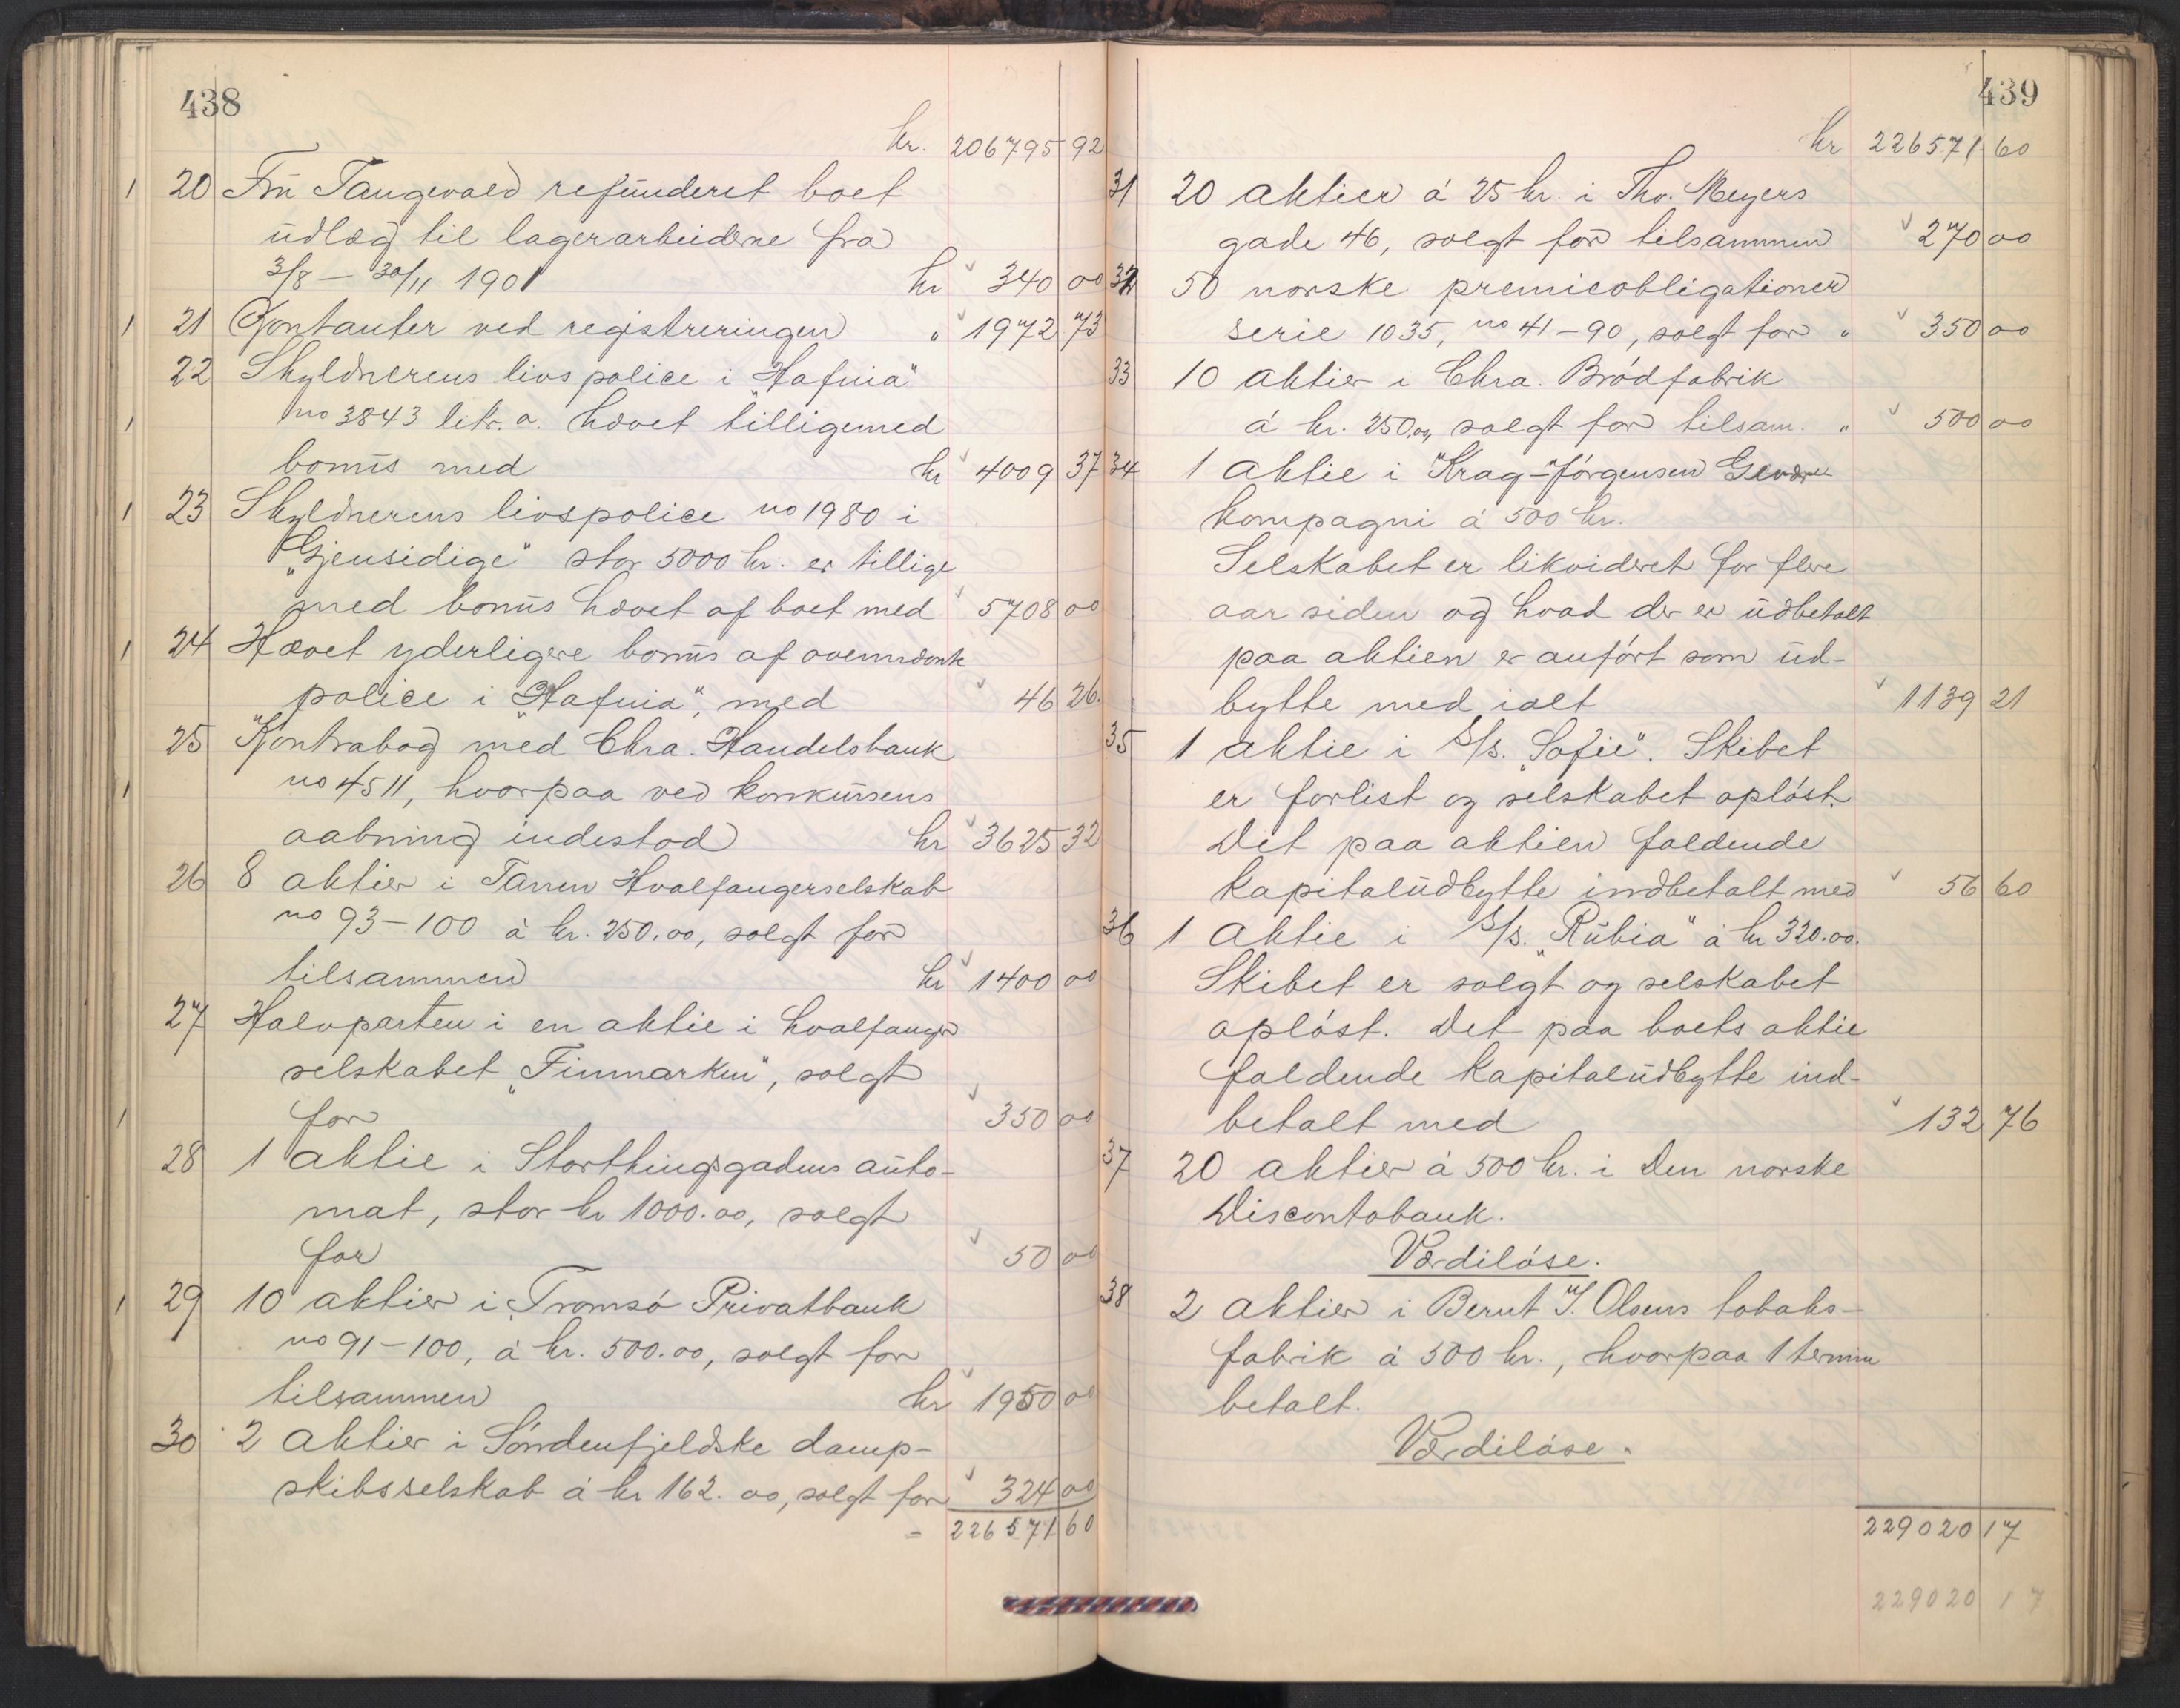 438
kr. 206795 92
20 Fru Tangevald refunderet boet
udlæg til lagerarbeiderne fra
3/8 – 30/11 1901 kr 340 00
21 Kontanter ved registreringen " 1972 73
22 Skyldnerens livspolice i "Hafnia"
no 3843 litr. a. hævet tilligemed
bonus med kr 4009 37
23 Skyldnerens livspolice no 1980 i
"Gjensidige" stor 5000 kr. er tillige
med bonus hævet af boet med 5708 00
24 Hævet yderligere bonus af ovennævnte
police i "Hafnia", med 46 26.
25 Kontrabog med Chra. Handelsbank
no 4511, hvorpaa ved konkursens
aabning indestod kr 3625 32
26 8 aktier i Tanen Hvalfangerselskab
no 93–100 à kr. 250.00, solgt for
tilsammen kr 1400 00
27 Halvparten i en aktie i hvalfanger
selskabet "Finmarken", solgt
for 350 00
28 1 aktie i Storthingsgadens auto-
mat, stor kr 1000.00, solgt
for 50 00
29 10 aktier i Tromsø Privatbank
no 91–100, à kr. 500.00, solgt for
tilsammen kr 1950 00
30 2 aktier i Söndenfjeldske damp-
skibsselskab à kr 162.00, solgt for 324 00
= 226571 60
439
kr 226571 60
31 20 aktier á 25 kr. i Tho. Meyers
gade 46, solgt for tilsammen 270 00
32 50 norske premieobligationer
serie 1035, no 41–90, solgt for " 350 00
33 10 aktier i Chra. Brödfabrik
á kr. 250.00, solgt for tilsam. " 500 00
34 1 aktie i "Krag-Jörgensen Gevær
kompagni á 500 kr.
Selskabet er likvideret for flere
aar siden og hvad der er udbetalt
paa aktien er anfört som ud-
bytte med ialt 1139 21
35 1 aktie i S/S. "Sofie". Skibet
er forlist og selskabet oplöst.
Det paa aktien faldende
kapitaludbytte indbetalt med 56 60
36 1 aktie i S/S. "Rubia" à kr 320.00.
Skibet er solgt og selskabet
oplöst. Det paa boets aktie
faldende kapitaludbytte ind-
betalt med 132 76
37 20 aktier á 500 kr. i Den norske
Discontobank.
Værdilöse.
38 2 aktier i Bernt J. Olsens tobaks-
fabrik á 500 kr., hvorpaa 1 termin
betalt.
Værdilöse.
229020 17
229020 17